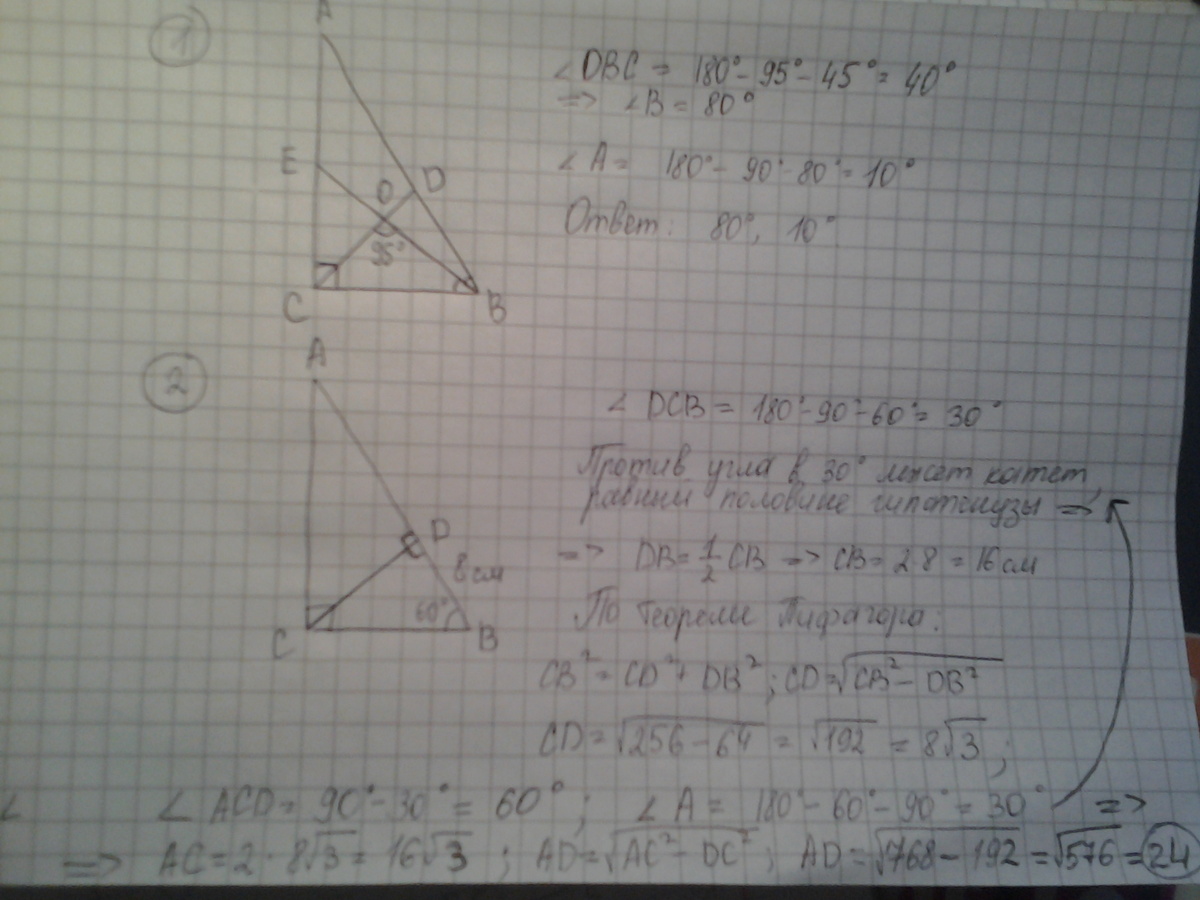 1)
A
E
O
D
95°
C
B
∠DBC = 180° - 95° - 45° = 40°
=> ∠B = 80°
∠A = 180° - 90° - 80° = 10°
Ответ: 80°, 10°
2
A
D
8см
60°
C
B
∠DCB = 180° - 90° - 60° = 30°
Против угла в 30° лежит катет,
равный половине гипотенузы =>
=> DB = 1/2 CB => CB = 2·8 = 16см
По теореме Пифагора:
CB² = CD² + DB²; CD = √(CB² - DB²)
CD = √(256 - 64) = √192 = 8√3;
∠ ∠ACD = 90° - 30° = 60°; ∠A = 180° - 60° - 90° = 30° =>
=> AC = 2·8√3 = 16√3; AD = √(AC² - DC²); AD = √(768 - 192) = √576 = 24